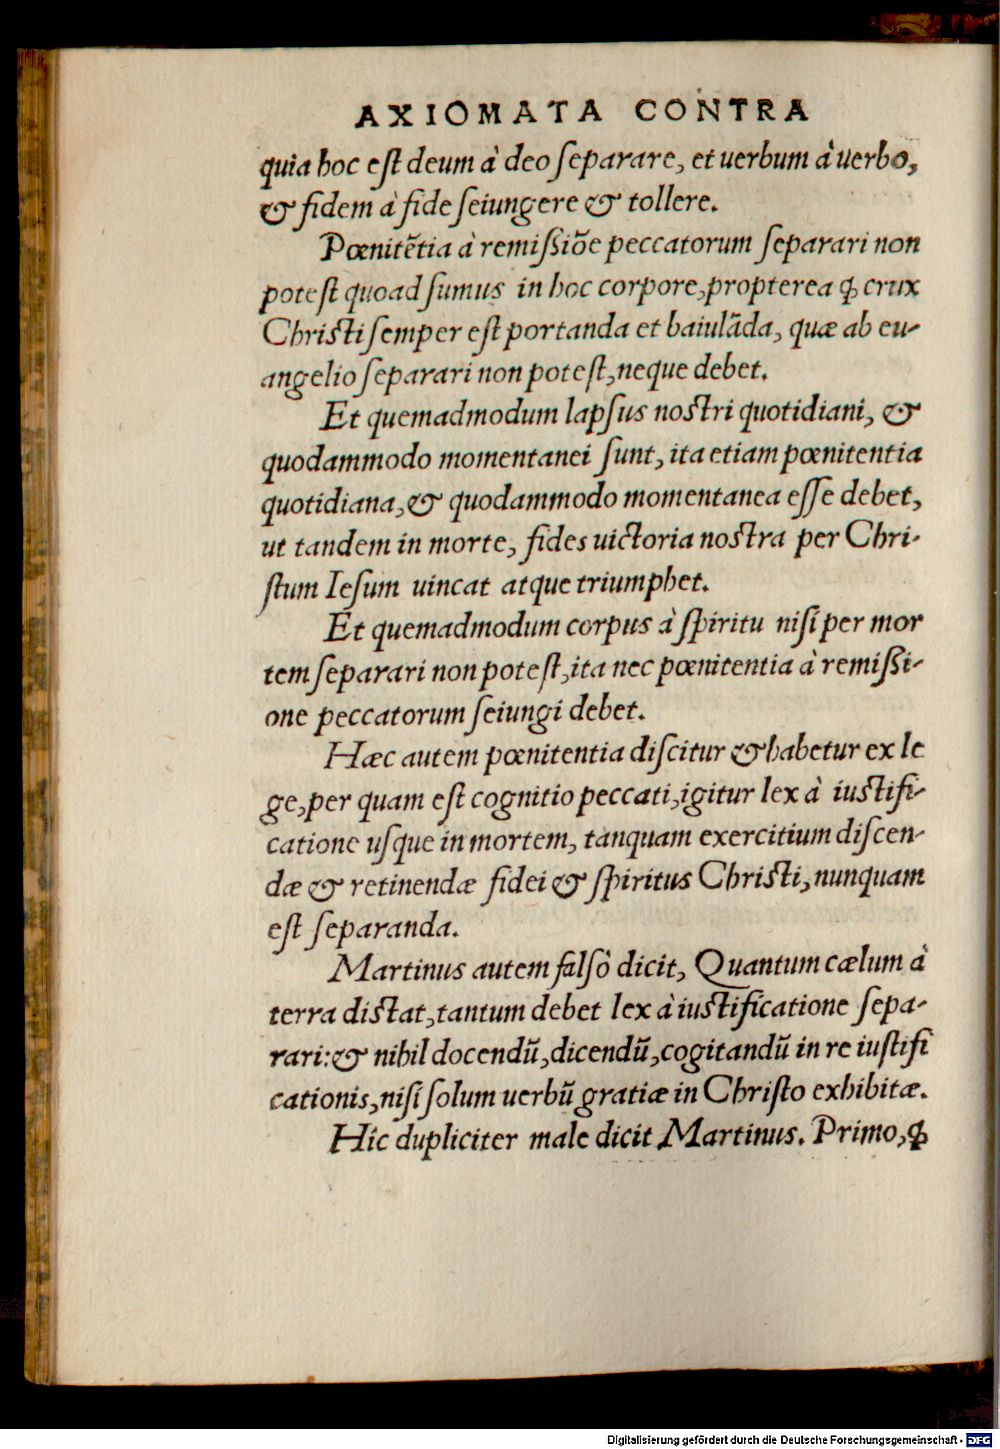 AXIOMATA CONTRA
quia hoc eſt deum à deo ſeparare, et uerbum à uerbo,
& fidem à fide ſeiungere & tollere.
Pœnitẽtia à remiſsiõe peccatorum ſeparari non
poteſt quoad ſumus in hoc corpore, propterea ꝙ crux
Chriſti ſemper eſt portanda et baiulãda, quæ ab eu-
angelio ſeparari non poteſt, neque debet.
Et quemadmodum lapſus noſtri quotidiani, &
quodammodo momentanei ſunt, ita etiam pœnitentia
quotidiana, & quodammodo momentanea eſſe debet,
ut tandem in morte, fides uictoria noſtra per Chri-
ſtum Ieſum uincat atque triumphet.
Et quemadmodum corpus à ſpiritu niſi per mor
tem ſeparari non poteſt, ita nec pœnitentia à remiſsi-
one peccatorum ſeiungi debet.
Hæc autem pœnitentia diſcitur & habetur ex le
ge, per quam eſt cognitio peccati, igitur lex à iuſtifi-
catione uſque in mortem, tanquam exercitium diſcen-
dæ & retinendæ fidei & ſpiritus Chriſti, nunquam
eſt ſeparanda.
Martinus autem falſò dicit, Quantum cælum à
terra diſtat, tantum debet lex à iuſtificatione ſepa-
rari: & nihil docendũ, dicendũ, cogitandũ in re iuſtifi
cationis, niſi ſolum uerbũ gratiæ in Chriſto exhibitæ.
Hîc dupliciter male dicit Martinus. Primo, ꝙ
Digitalisierung gefördert durch die Deutsche Forschungsgemeinschaft - DFG